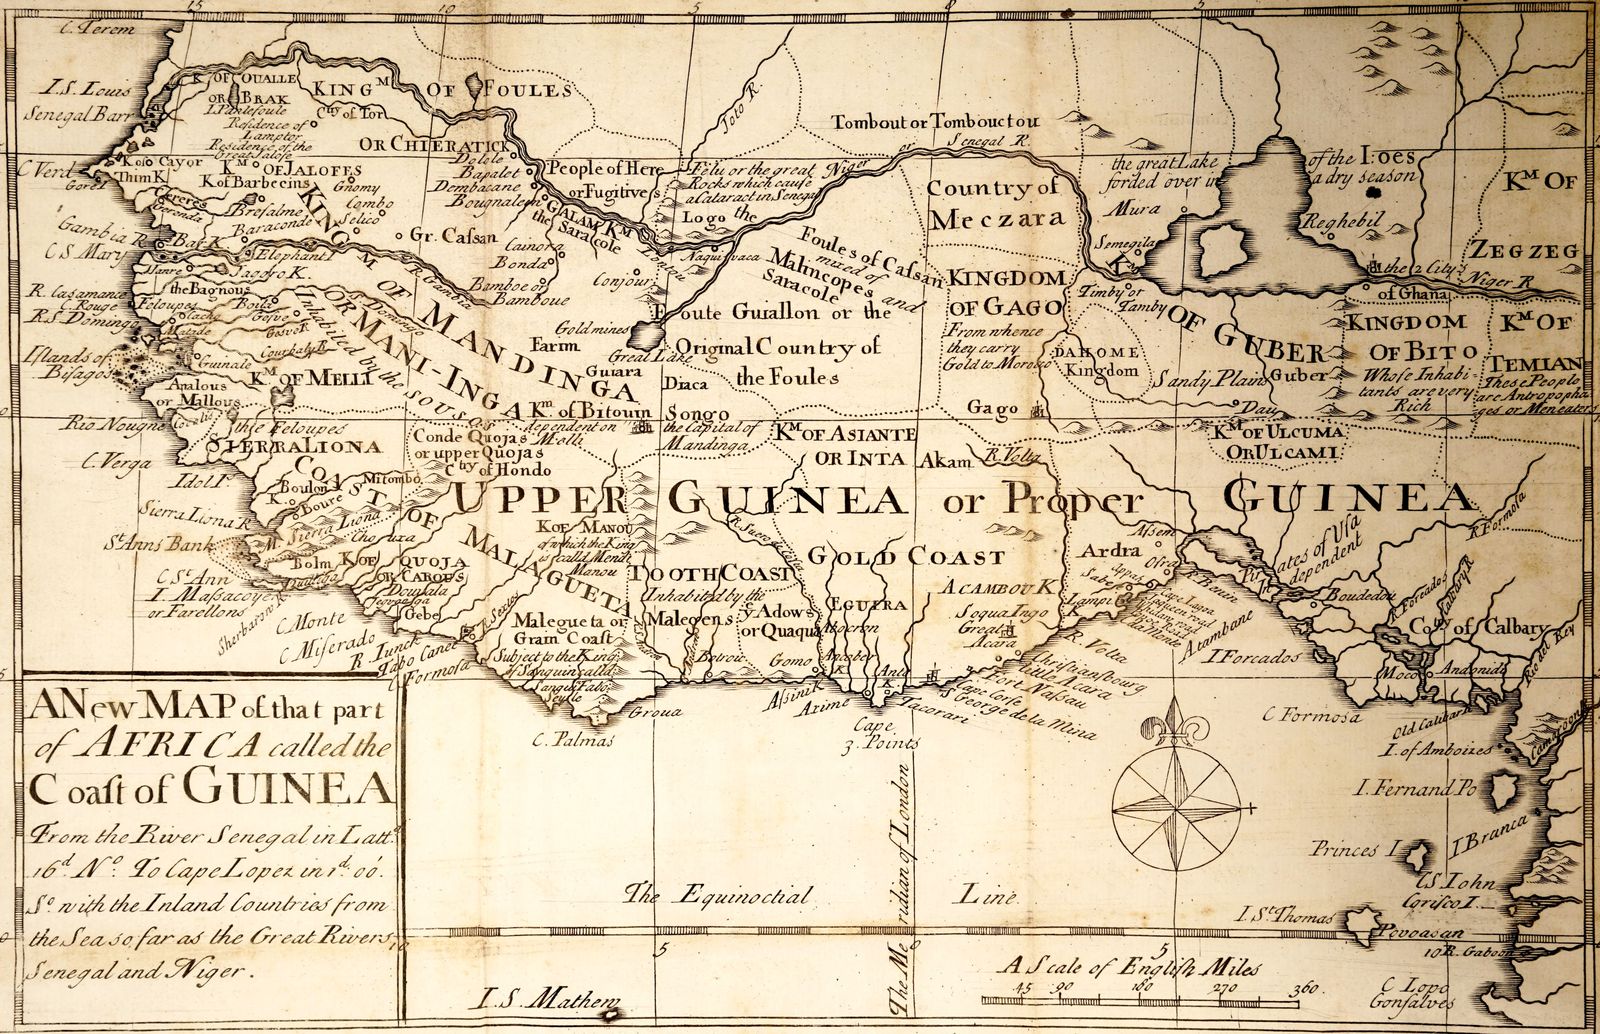 15
10
5
0
5
10
C. Terem
I. S. Louis
Senegal Barr
K OF OUALLE
OR BRAK
Residence of
Residence of the
KINGM OF FOULES
City of Tor
OR CHIERATICK
C Verd
Goree
Kolo Cayor
Thim K
KM OF JALOFES
K of Barbecins
Gnomy
Combo
Selico
Brefalme
Baraconde
Gr. Caſsan
Dolole
Bapalet
Dembacane
Bougnalem
People of Here
or Fugitives
GALAM KM
the Saracole
Joto R.
Felu or the great
Rocks which cauſe
a Cataract in Senega
Logo
the
Niger
or
Senegal R.
Tombout or Tombouctou
the great Lake
forded over in
of the I:oes
a dry season
Mura
Semegila
Reghebil
KM OF
ZEGZEG
Country of
Meczara
Gambia R
C S. Mary
Bar K
Elephant I
Jagoyo K.
the Bagnous
R. Gambia
Cainora
Bonda
Bamboe or
Bamboue
Conjour
Naquivaca
Foules of Caſsan
mixed of
Malincopes and
Saracole
KINGDOM
OF GAGO
From whence
they carry
Gold to Morokco
DAHOME
Kingdom
Timby or
Tamby
KM OF GUBER
Guber
Sandy Plain
Day
the 2 City's
of Ghana
Niger R
KINGDOM
OF BITO
Whose Inhabi-
tants are very
Rich
KM OF
TEMIAN
These People
are Antropopha
ges or Meneaters
R. Casamance
R. S. Domingo
Feloupes
Iſlands of
Biſagos
Guinale
KINGM OF MANDINGA
OR MANI-INGA
Inhabited by the SOUSOS
Gold mines
Farim
Great Lake
Guiara
Diaca
Foute Guiallon or the
Original Country of
the Foules
Apalous
or Mallous
KM OF MELLI
Rio Nougne
the Feloupes
C. Verga
SIERRALIONA
COAST OF MALAGUETA
KM. of Bitouin
dependent on
Melli
Songo
the Capital of
Mandinga
KM OF ASIANTE
OR INTA
Gago
Akam
R. Volta
KM OF ULCUMA
OR ULCAMI
Conde Quojas
or upper Quojas
Ctry of Hondo
Idol I
Boulon
K.
Boure
Mitombo
Sierra Liona R
St Anns Bank
M Sierra Liona
UPPER GUINEA or Proper GUINEA
K OF MANOU
of which the King
is called Mendi
Manou
R. Suero
GOLD COAST
TOOTH COAST
Inhabited by the
Malegens
ye Adows
or Quaqua
EGUIRA
ACAMBOU K
Soqua Ingo
Great
Acara
Ardra
Aſsem
Ofra
Pirates of Usa
Independent
R. Formosa
Boudedou
R Forcados
City of Calbary
C St Ann
I. Maſsacoye
or Farellons
Sherbaron R
Bolm
K OF QUOJA
OR CAROUS
Gebe
C Monte
C Miſerado
R. Junck
Tabo Canee
C Formoſa
Malegueta or
Grain Coast
Subject to the King
of Sanguin
Groua
C. Palmas
Betrou
Gomo
Aſsini K
Axime
Cape
3. Points
Tacorari
Cape Corse
S George de la Mina
Fort Naſsau
little Acara
Chriſtiansbourg
R. Volta
R. Benin
Atambane
I Forcados
C Formoſa
Moco
Andonida
Rio del Rey
Old Calibara
I. of Amboizes
Cameroon
I. Fernand Po
Princes I
I Branca
C S Iohn
Corisco I.
I. St Thomas
Povoasan
R. Gaboon
C Lopo
Gonsalves
A New MAP of that part
of AFRICA called the
Coaſt of GUINEA
From the River Senegal in Latt.d
16d No To Cape Lopez in 1d. 00'.
So with the Inland Countries from
the Sea so far as the Great Rivers
Senegal and Niger.
The Equinoctial Line
The Meridian of London
I. S. Mathew
5
0
5
10
A Scale of Engliſh Miles
45 90 180 270 360